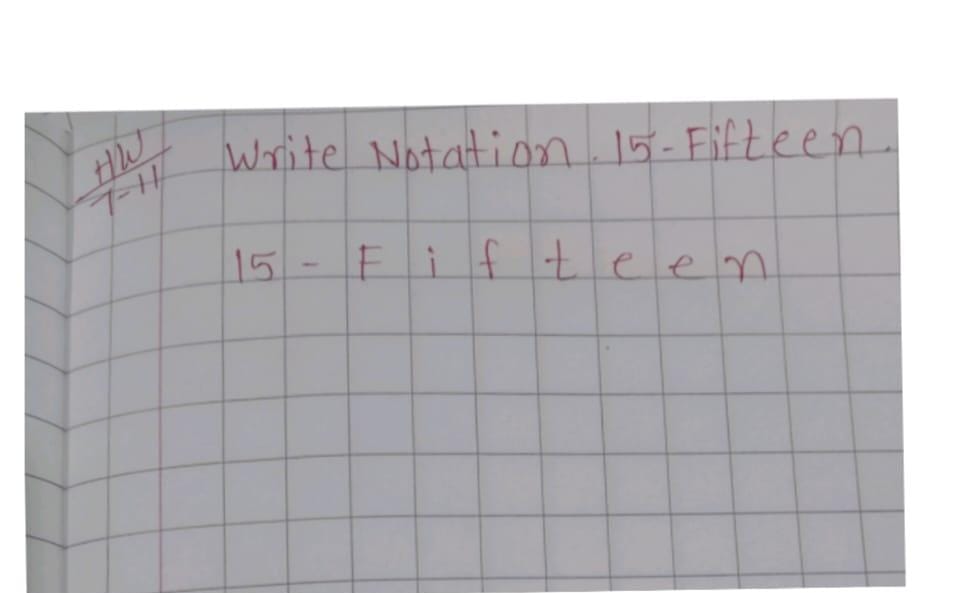 HW
7-11
Write Notation. 15-Fifteen.
15 - F i f t e e n